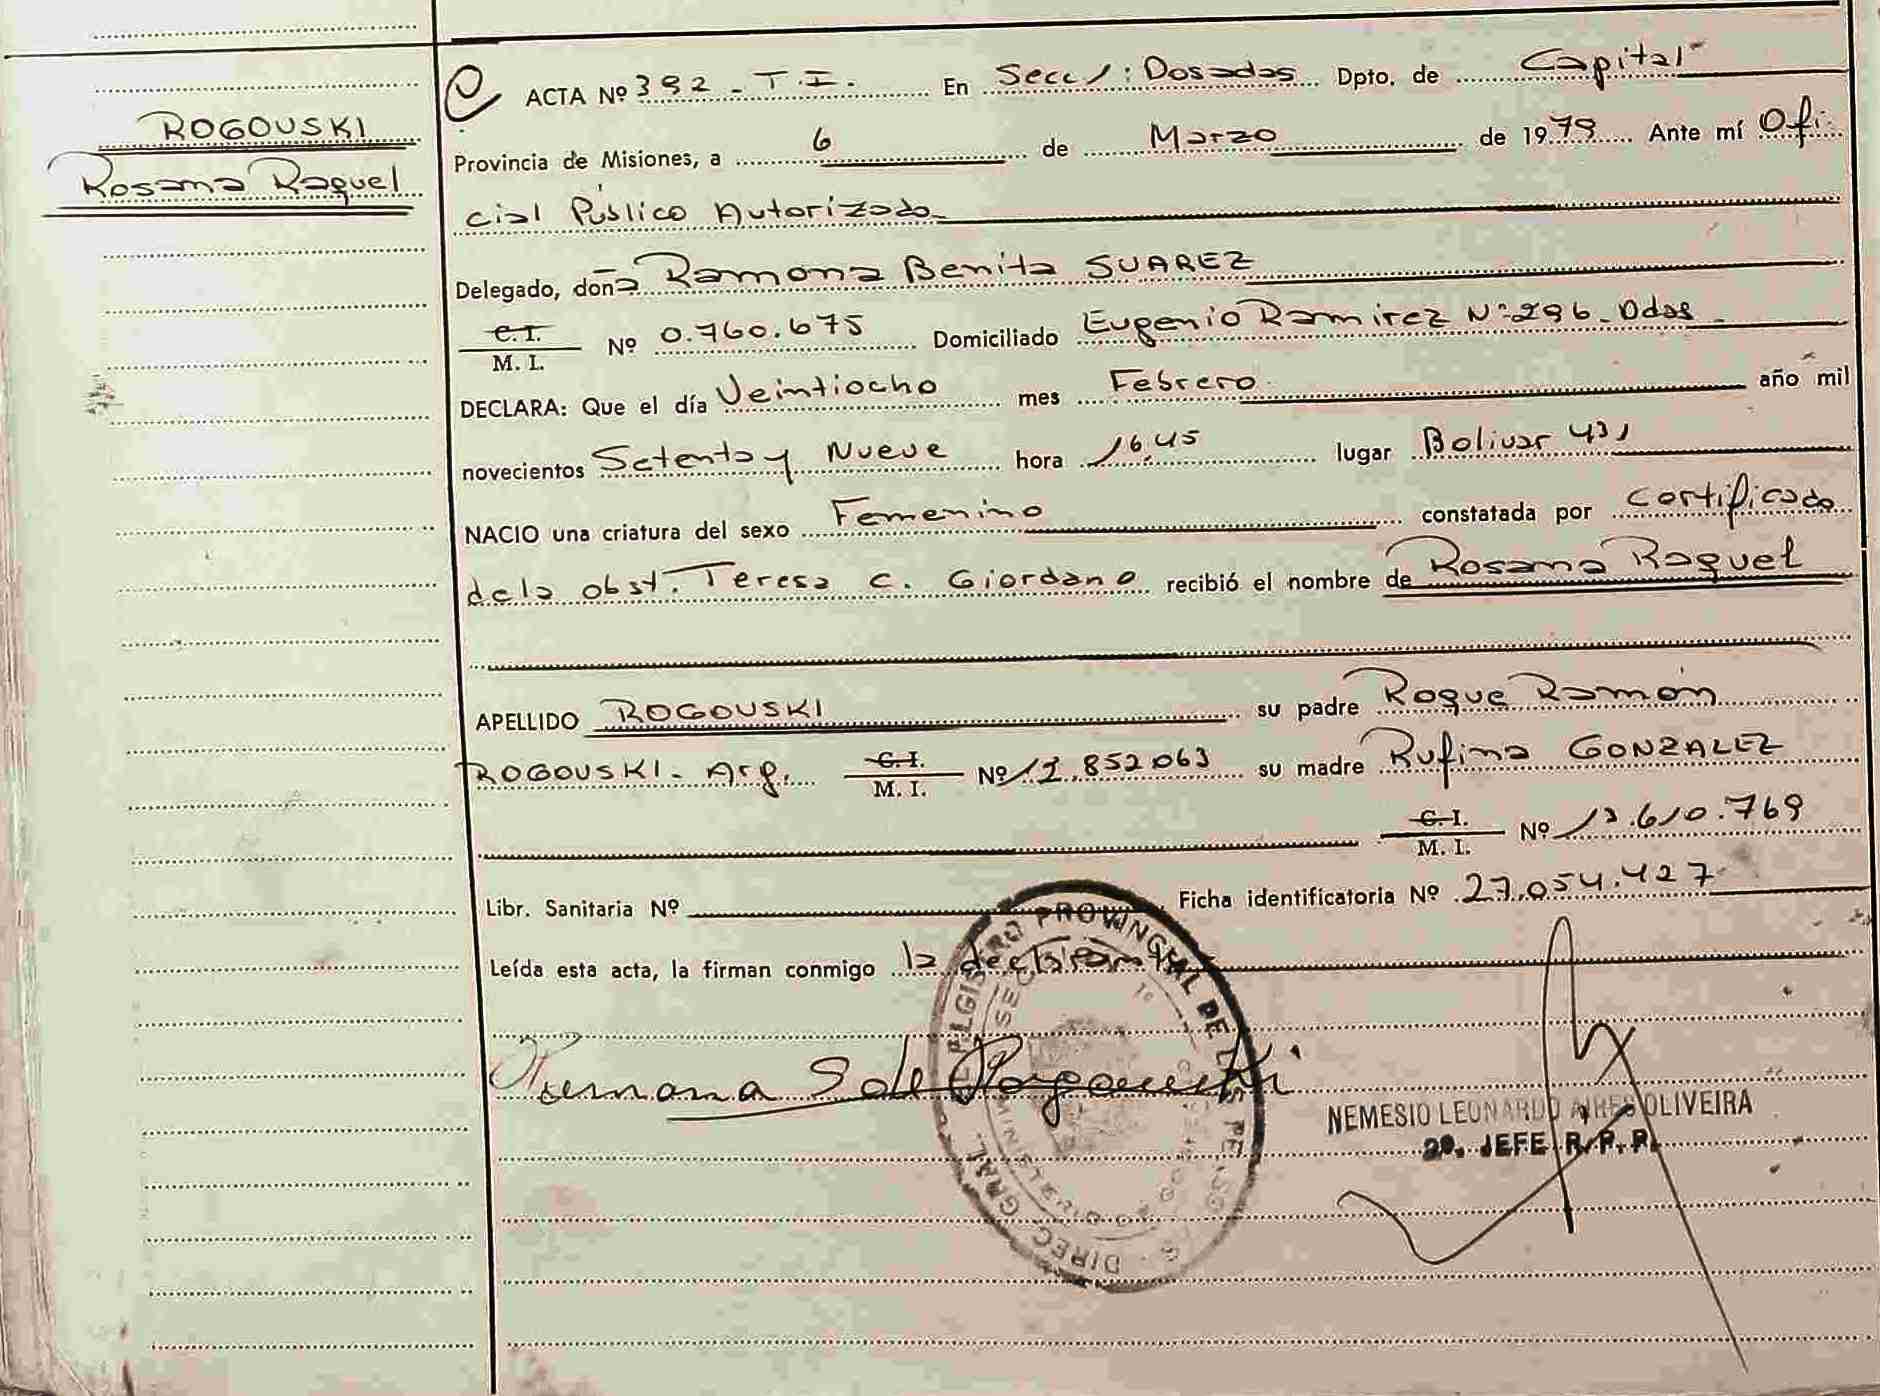 ROGOUSKI
Rosana Raquel
ACTA Nº 392 - T.I. En Secc 1: Posadas Dpto. de Capital
Provincia de Misiones, a 6 de Marzo de 1979 Ante mí Ofi
cial Público Autorizado
Delegado, doña Ramona Benita SUAREZ
C.I. / M.I. Nº 0.760.675 Domiciliado Eugenio Ramirez Nº 296 - Pdas -
DECLARA: Que el día Veintiocho mes Febrero año mil
novecientos Setenta y Nueve hora 16,45 lugar Bolivar 431
NACIO una criatura del sexo Femenino constatada por certificado
de la obst. Teresa C. Giordano recibió el nombre de Rosana Raquel
APELLIDO ROGOUSKI su padre Roque Ramón
ROGOUSKI - Arg. C.I. / M.I. Nº 12.852063 su madre Rufina GONZALEZ
C.I. / M.I. Nº 13.610.769
Libr. Sanitaria Nº Ficha identificatoria Nº 27.054.427
Leída esta acta, la firman conmigo la declarante
DIREC. GRAL. REGISTRO PROVINCIAL DE LAS PERSONAS
Ramona S de Rogouski
NEMESIO LEONARDO AIRES OLIVEIRA
2º. JEFE R.P.P.